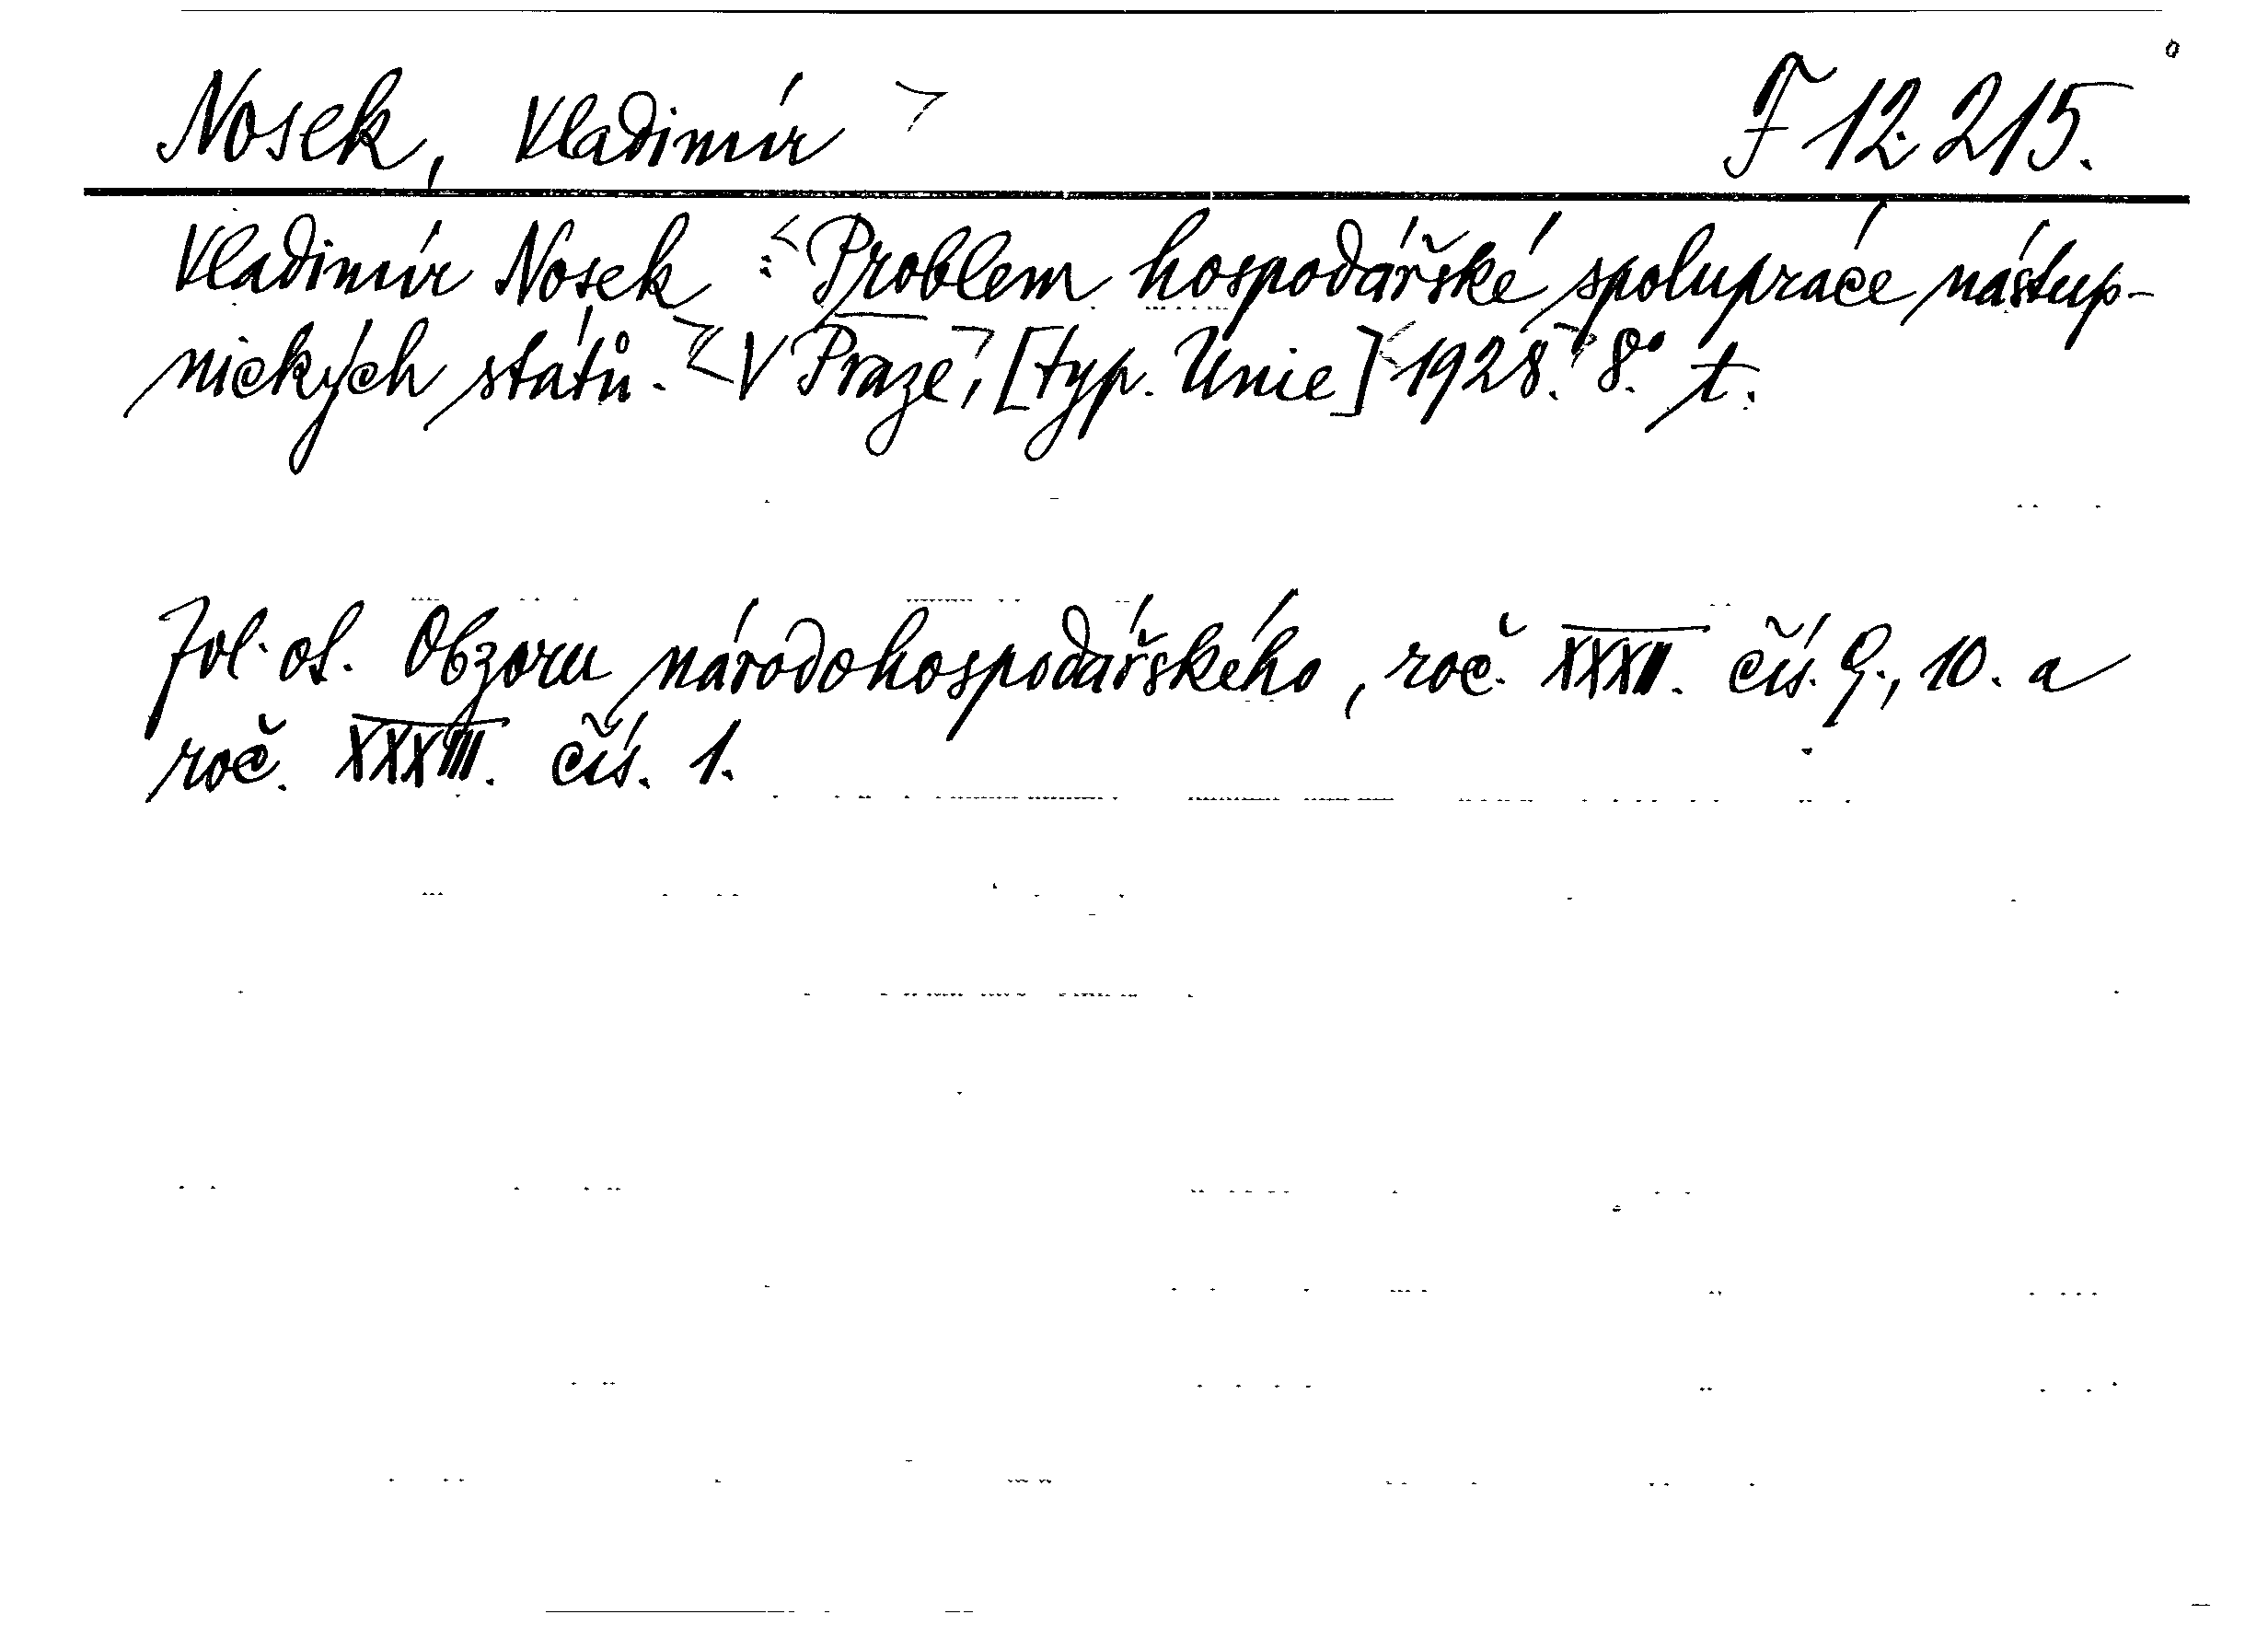 Nosek, Vladimír F 12.215.
Vladimír Nosek: Problem hospodářské spolupráce nástup-
nických států. V Praze, [typ. Unie] 1928. 8° t.
Zvl. ot. Obzoru národohospodářského, roč. XXXII. čís. 9., 10. a
roč. XXXIII. čís. 1.